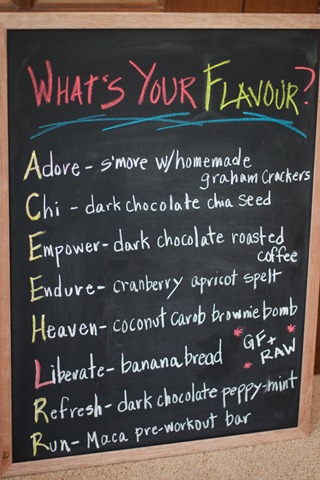 What's Your Flavour?
Adore - s'more w/homemade
graham crackers
Chi - dark chocolate chia seed
Empower - dark chocolate roasted
coffee
Endure - cranberry apricot spelt
Heaven - coconut carob brownie bomb
Liberate - banana bread
GF +
RAW
Refresh - dark chocolate peppy-mint
Run - Maca pre-workout bar